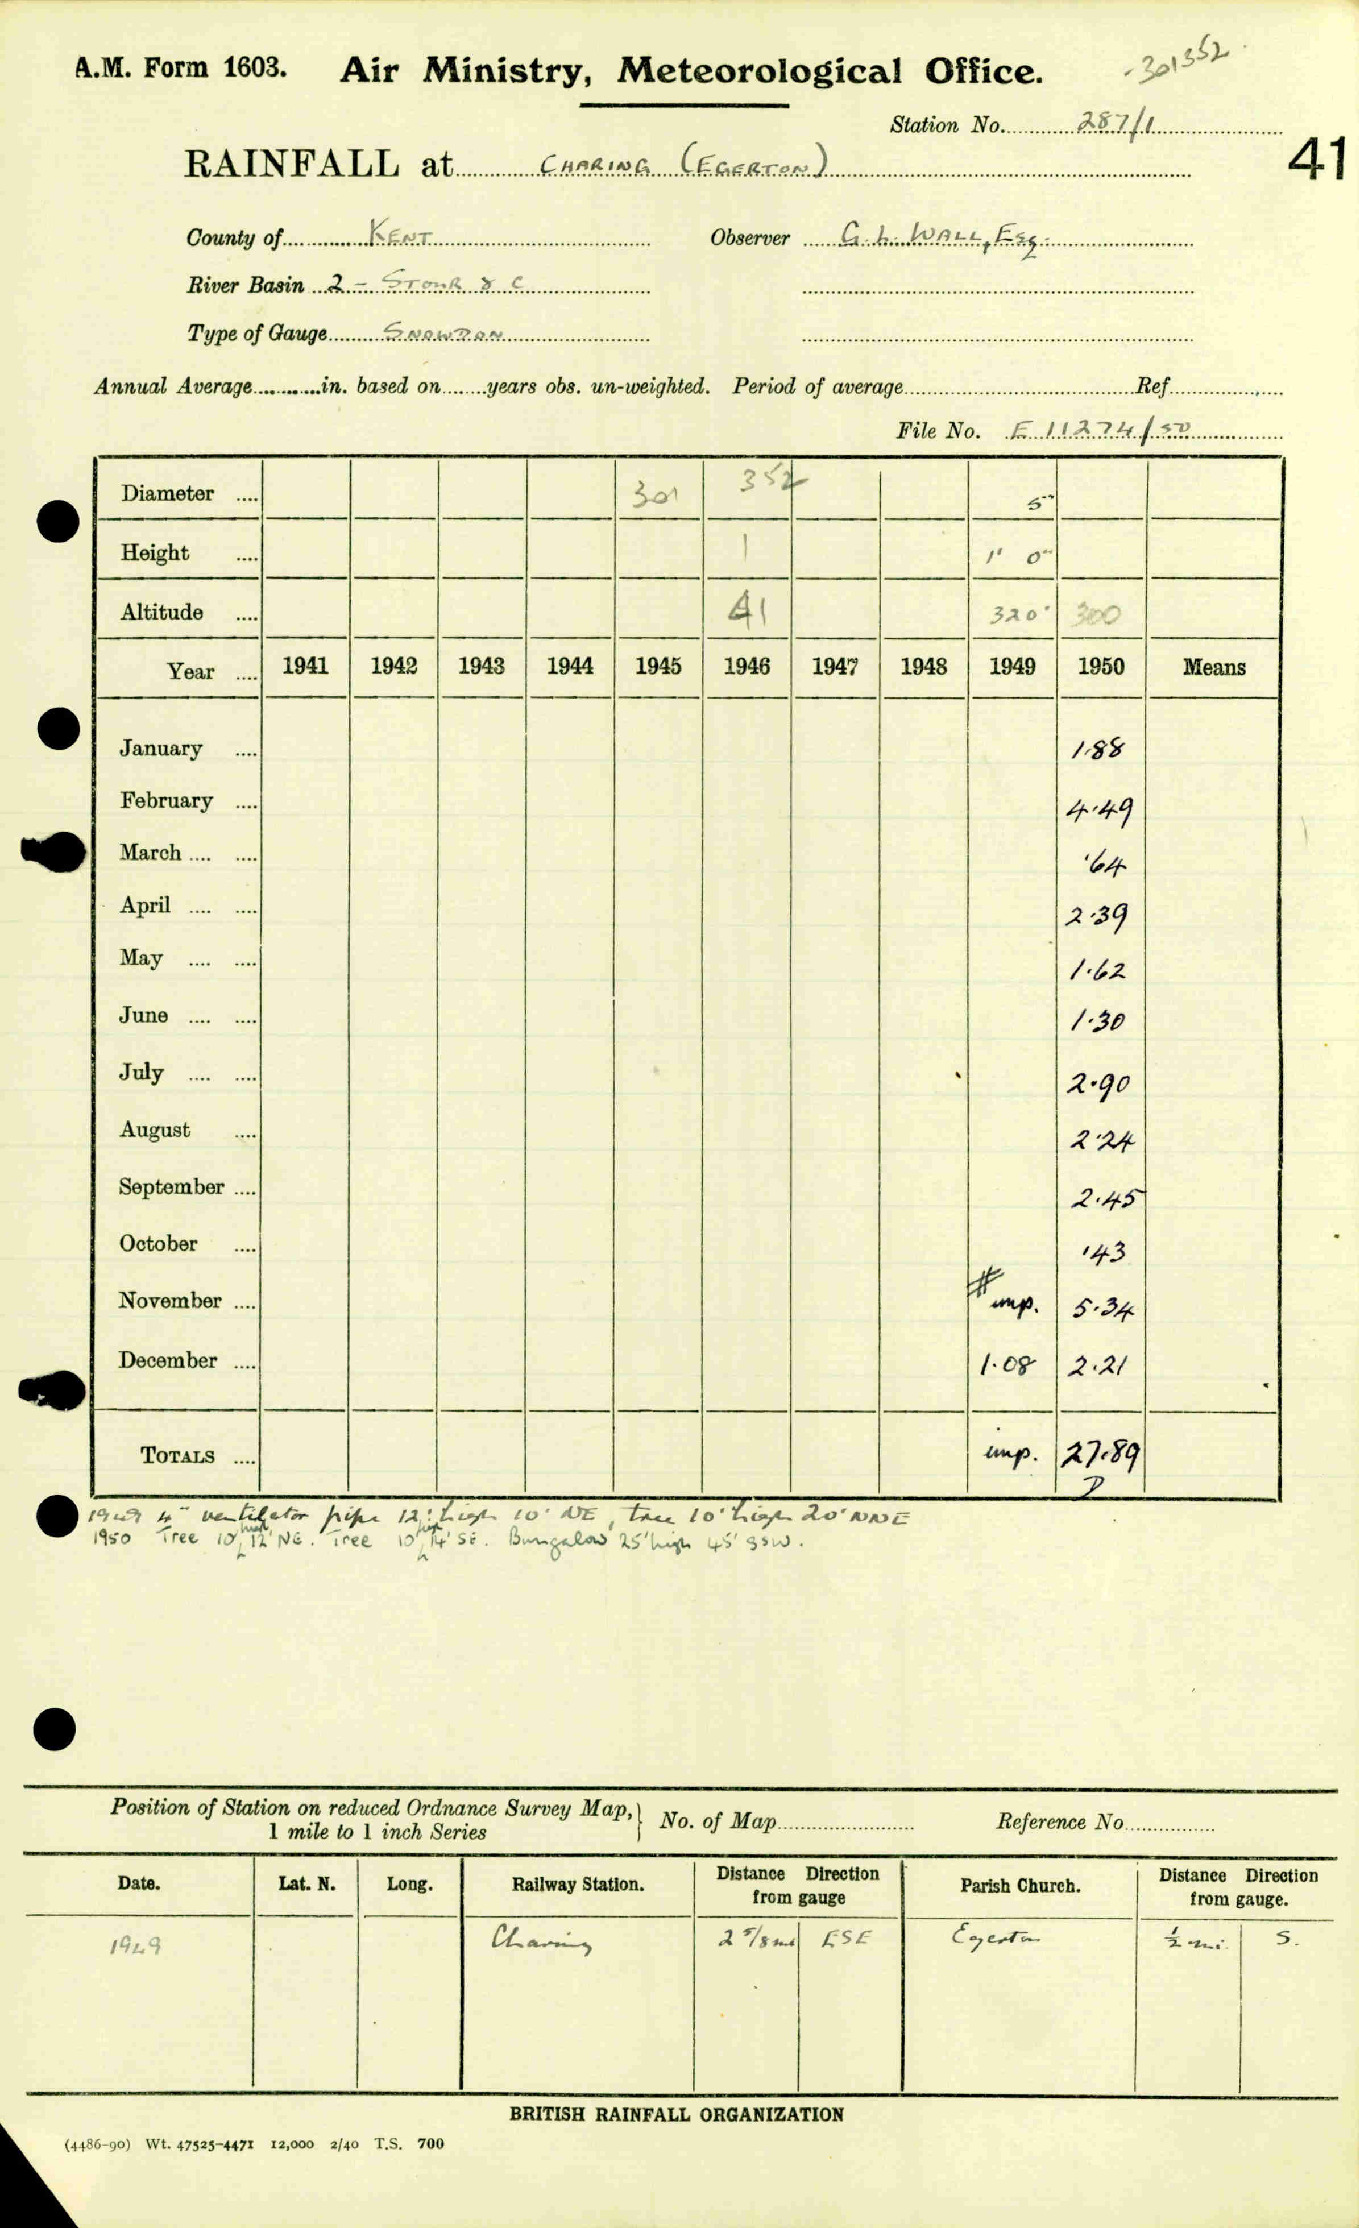 A.M. Form 1603. Air Ministry, Meteorological Office. 301352
Station No. 287/1
41
RAINFALL at CHARING (EGERTON)
County of KENT Observer G. L. WALL, Esq.
River Basin 2 - STOUR & C
Type of Gauge SNOWDON
Annual Average in. based on years obs. un-weighted. Period of average Ref.
File No. E 11274/50
Diameter 301 352 5"
Height 1 1' 0"
Altitude 41 320' 300
Year 1941 1942 1943 1944 1945 1946 1947 1948 1949 1950 Means
January 1.88
February 4.49
March .64
April 2.39
May 1.62
June 1.30
July 2.90
August 2.24
September 2.45
October .43
November # imp. 5.34
December 1.08 2.21
TOTALS imp. 27.89
D
1949 4" ventilator pipe 12' high 10' NE, tree 10' high 20' NNE
1950 Tree 10' high 12' NE. Tree 10' high 14' SE. Bungalow 25' high 45' SSW.
Position of Station on reduced Ordnance Survey Map, 1 mile to 1 inch Series } No. of Map Reference No.
Date. Lat. N. Long. Railway Station. Distance Direction from gauge Parish Church. Distance Direction from gauge.
1949 Charing 2 5/8 mi ESE Egerton ½ mi. S.
BRITISH RAINFALL ORGANIZATION
(4486-90) Wt. 47525-4471 12,000 2/40 T.S. 700